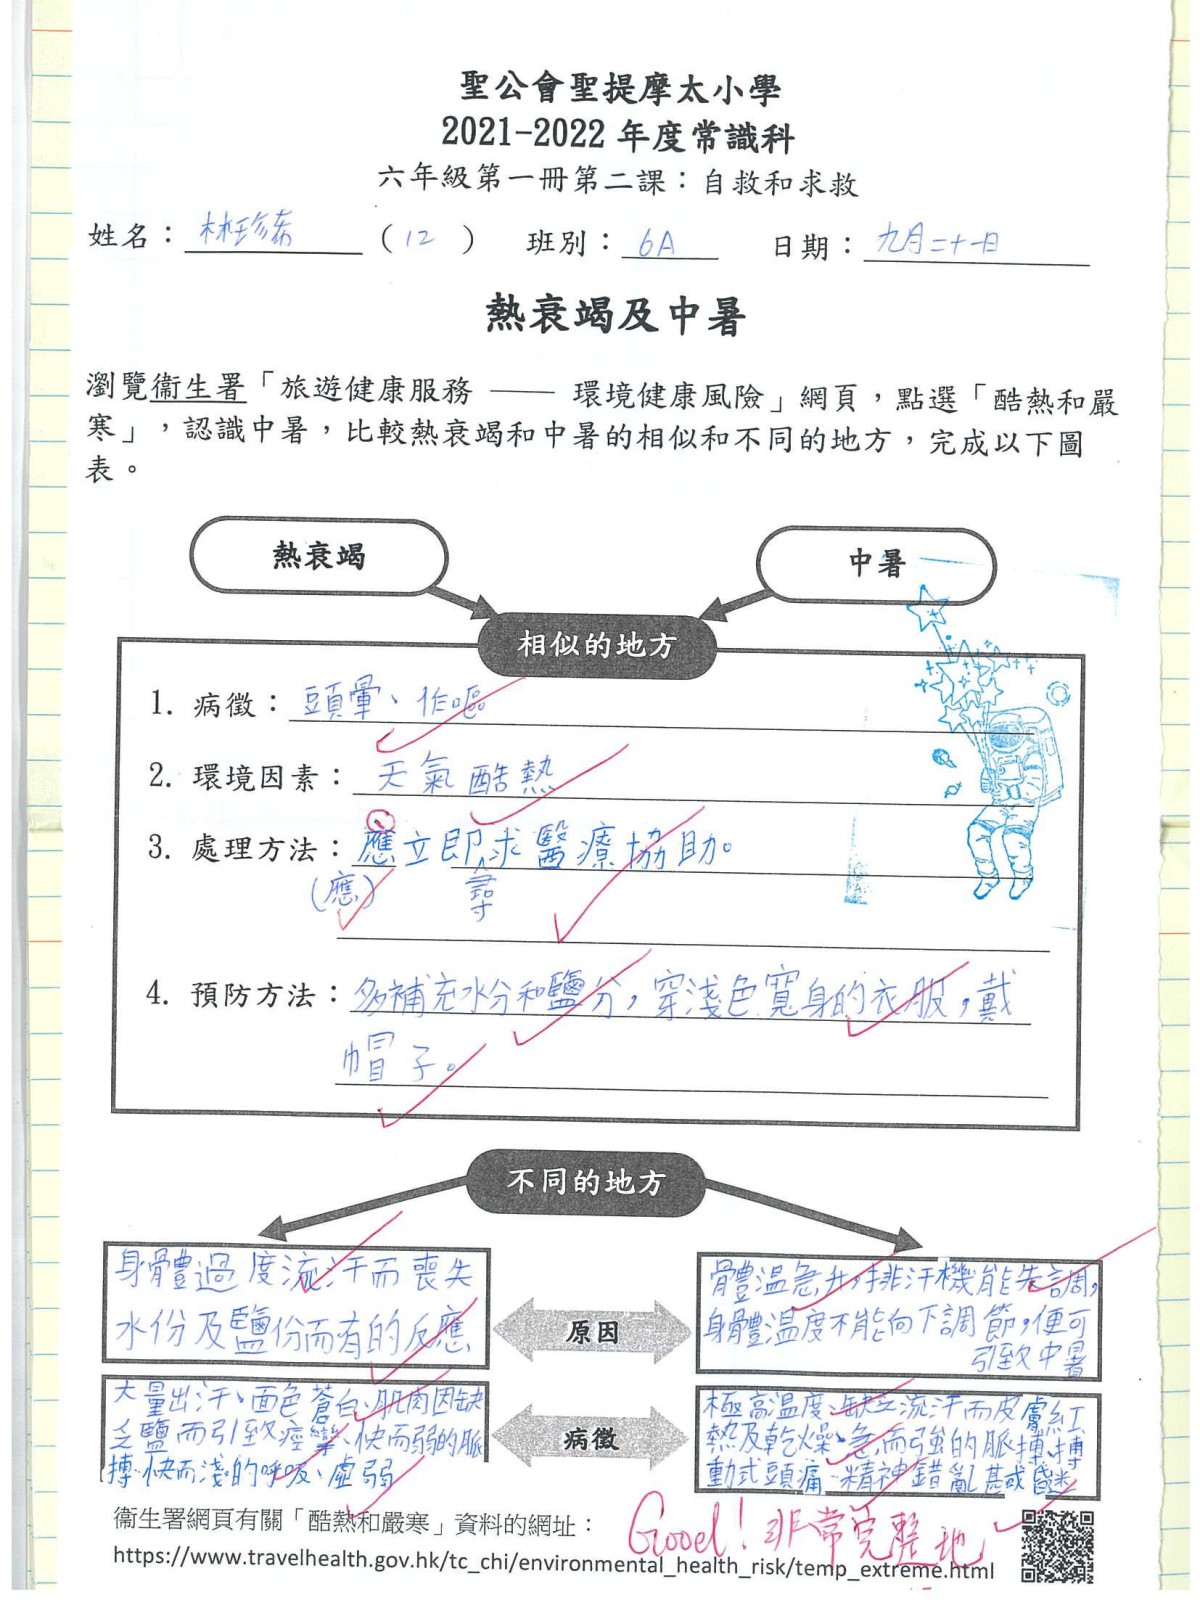 聖公會聖提摩太小學
2021-2022 年度常識科
六年級第一冊第二課：自救和求救
姓名：林珍希 （12 ） 班別：6A 日期：九月二十一日
熱衰竭及中暑
瀏覽衞生署「旅遊健康服務 —— 環境健康風險」網頁，點選「酷熱和嚴
寒」，認識中暑，比較熱衰竭和中暑的相似和不同的地方，完成以下圖
表。
熱衰竭
中暑
相似的地方
1. 病徵：頭暈、作嘔
2. 環境因素：天氣酷熱
3. 處理方法：應立即求醫療協助。
(應) 尋
4. 預防方法：多補充水分和鹽分，穿淺色寬身的衣服，戴
帽子。
不同的地方
身體過度流汗而喪失
水份及鹽份而有的反應
原因
體溫急升，排汗機能失調，
身體溫度不能向下調節，便可
引致中暑
大量出汗、面色蒼白、肌肉因缺
乏鹽而引致痙攣、快而弱的脈
搏、快而淺的呼吸、虛弱
病徵
極高溫度、缺乏流汗而皮膚紅
熱及乾燥、急而強的脈搏、搏
動式頭痛、精神錯亂甚或昏迷
衞生署網頁有關「酷熱和嚴寒」資料的網址：
Good! 非常完整地
https://www.travelhealth.gov.hk/tc_chi/environmental_health_risk/temp_extreme.html